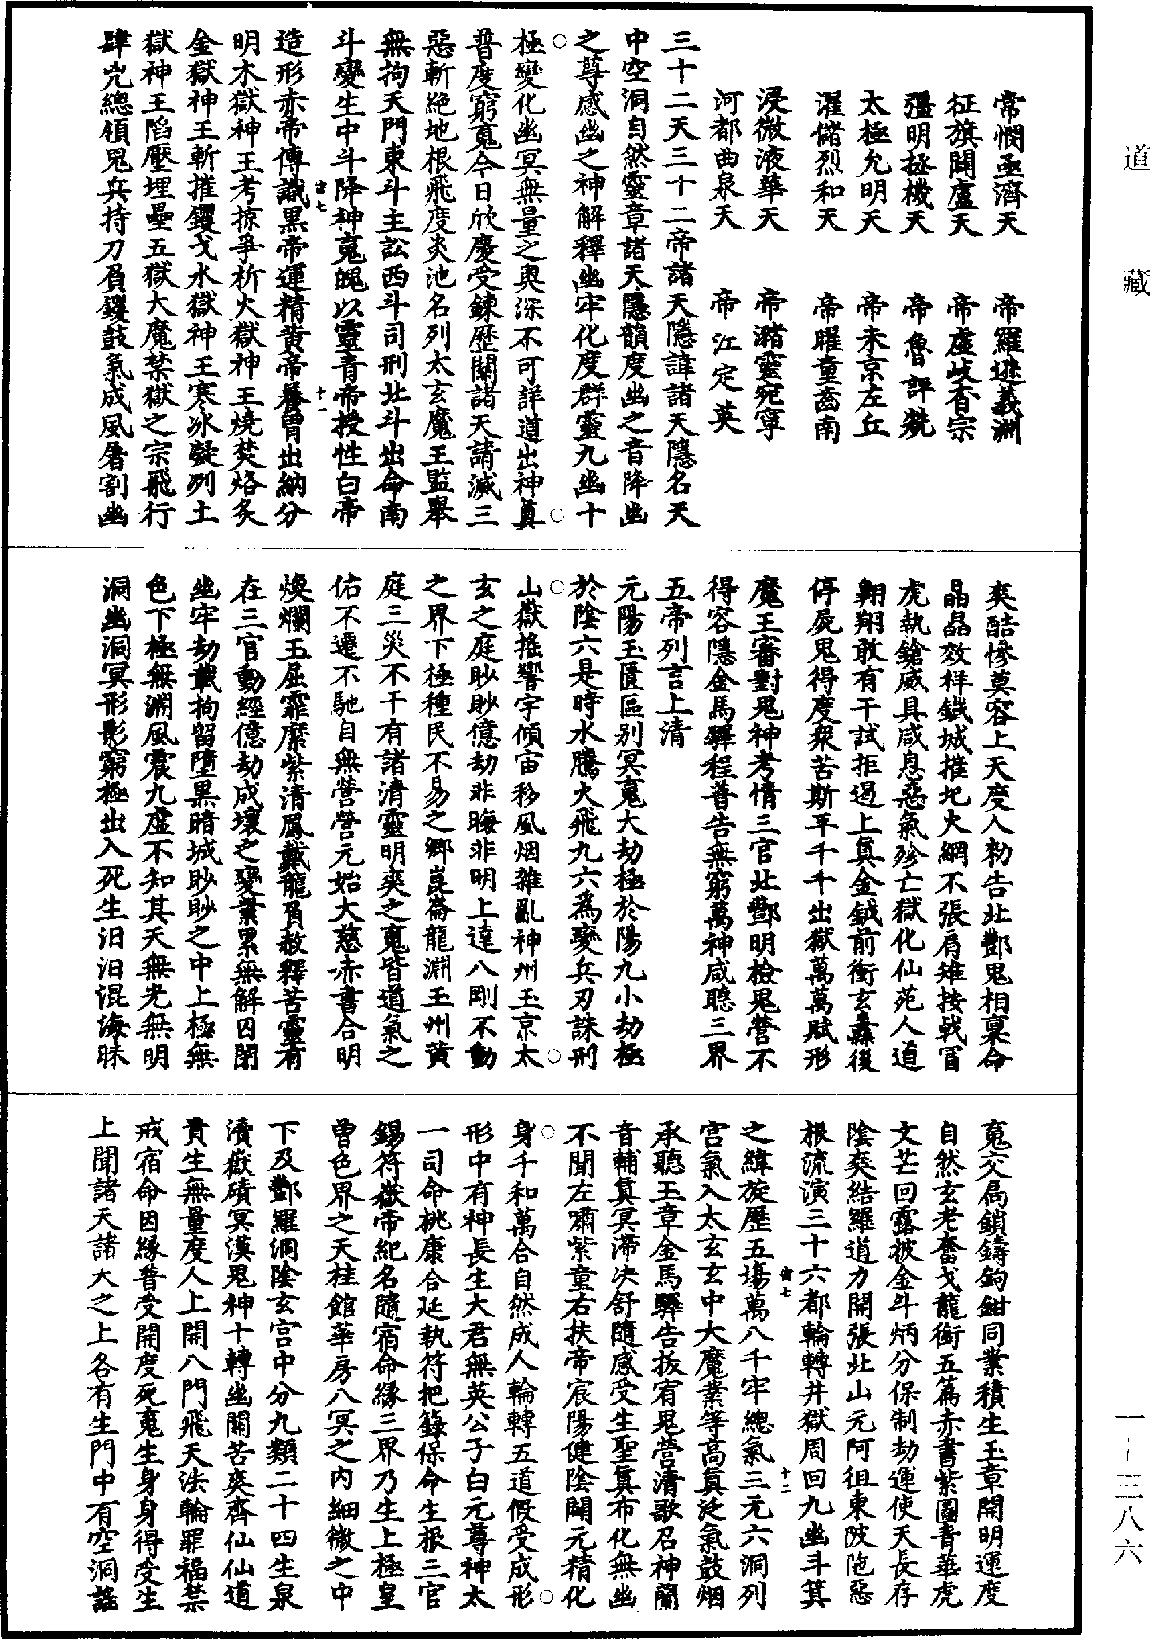 道藏
常憫亟濟天　帝羅迻義淵
征旗閞廬天　帝虛岐香宗
彊明拯機天　帝魯評兟
太極允明天　帝未京左丘
濯儲烈和天　帝曜童啚南
浸微液華天　帝瀦靈宛寧
河都曲泉天　帝江定英
三十二天三十二帝諸天隱諱諸天隱名天
中空洞自然靈章諸天隱韻度幽之音降幽
之尊感幽之神解釋幽牢化度群靈九幽十
極變化幽冥無量之奧深不可詳道出神真
普度窮䰟今日欣慶受鍊歷關諸天請滅三
惡斬絕地根飛度炎池名列太玄魔王監舉
無拘天門東斗主訟西斗司刑北斗出命南
斗變生中斗降神䰟魄以靈青帝授性白帝
造形赤帝傳識黑帝運精黃帝養胃出納分
宙七
十一
明木獄神王考掠爭析火獄神王燒焚烙炙
金獄神王斬摧钁戈水獄神王寒冰凝冽土
獄神王陷壓埋壘五獄大魔禁獄之宗飛行
肆兇總領鬼兵持刀負钁鼓氣成風屠割幽
爽酷慘奠容上天度人勑告北酆鬼相稟命
晶晶效祥鐵城摧圮火網不張肩雉按戟罥
虎執鎗威具咸息惡氣殄亡獄化仙苑人道
翱翔敢有干試拒遏上真金鉞前衝玄纛後
停屍鬼得度衆苦斯平千千出獄萬萬賦形
魔王審對鬼神考情三官北酆明檢鬼營不
得容隱金馬驛程普告無窮萬神咸聽三界
五帝列言上清
元陽玉匱區别冥䰟大劫極於陽九小劫極
於陰六是時水騰火飛九六爲變兵刃誅刑
山嶽搖響宇傾宙移風烟雜亂神州玉京太
玄之庭眇眇億劫非晦非明上達八剛不動
之界下極種民不易之鄉崑崙龍淵玉州黃
庭三災不干有諸清靈明爽之䰟皆道氣之
佑不遷不馳自無營營元始大慈赤書合明
煥爛玉屈霏縻紫清鳳戴龍負救釋苦靈有
在三官動經億劫成壞之變業累無解囚閉
幽牢劫載拘留墮黑暗城眇眇之中上極無
色下極無淵風震九虛不知其天無光無明
洞幽洞冥形影窮極出入死生汨汨混海昧
䰟交扃鎖鑄鉤鉗同業積生玉章開明運度
自然玄老奮戈龍銜五篇赤書紫圖青華虎
文芒回露披金斗炳分保制劫運使天長存
陰爽結羅道力開張北山元阿徂東陂陁惡
根流演三十六都輪轉井獄周回九幽斗箕
之緯旋歷五塲萬八千牢總氣三元六洞列
宙七
十二
宫氣入太玄玄中大魔業等高真泛氣鼓烟
承聽玉章金馬驛告拔宥鬼營清歌召神蘭
音輔真冥滯决舒隨感受生聖真布化無幽
不聞左嘯紫童右扶帝宸陽健陰闢元精化
身千和萬合自然成人輪轉五道假受成形
形中有神長生大君無英公子白元尊神太
一司命桃康合延執符把籙保命生根三官
錫符嶽帝紀名隨宿命緣三界乃生上極皇
曾色界之天桂館華房八冥之内細微之中
下及酆羅洞陰玄宫中分九類二十四生泉
瀆嶽磧冥漠鬼神十轉幽關苦爽齊仙仙道
貴生無量度人上開八門飛天法輪罪福禁
戒宿命因緣普受開度死䰟生身身得受生
上聞諸天諸天之上各有生門中有空洞謠
一-三八六